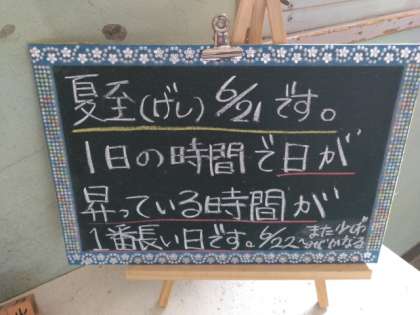 夏至(げし)6/21です。
1日の時間で日が
昇っている時間が
1番長い日です。6/22〜
また少しずつ
なる